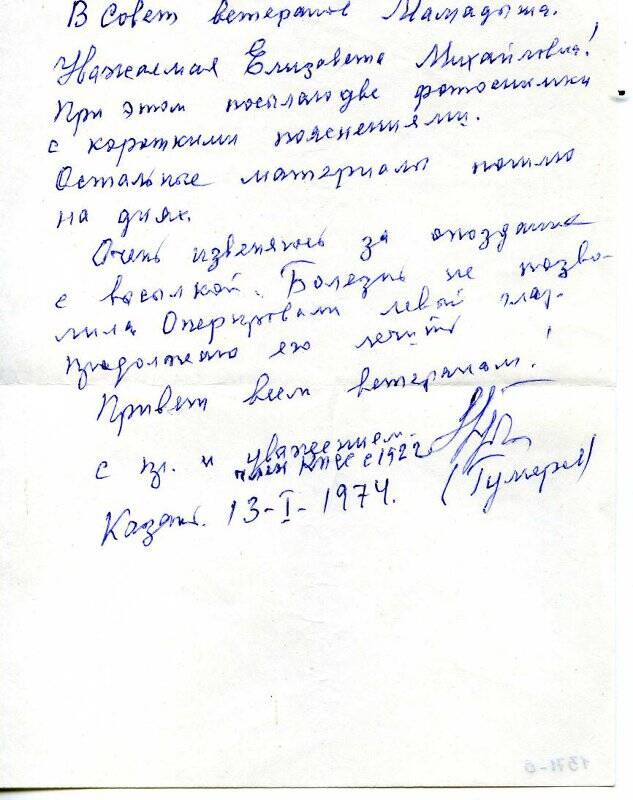 В Совет ветеранов Мамадыша.
Уважаемая Елизавета Михайловна!
При этом посылаю две фотоснимки
с короткими пояснениями.
Остальные материалы пошлю
на днях.
Очень извеняюсь за опоздание
с высылкой. Болезнь не позво-
лила. Оперировали левый глаз.
Продолжаю его лечить.
Привет всем ветеранам!
с пр. и уважением
член КПСС с 1922
(Гумеров)
Казань. 13-I-1974.
1371-6